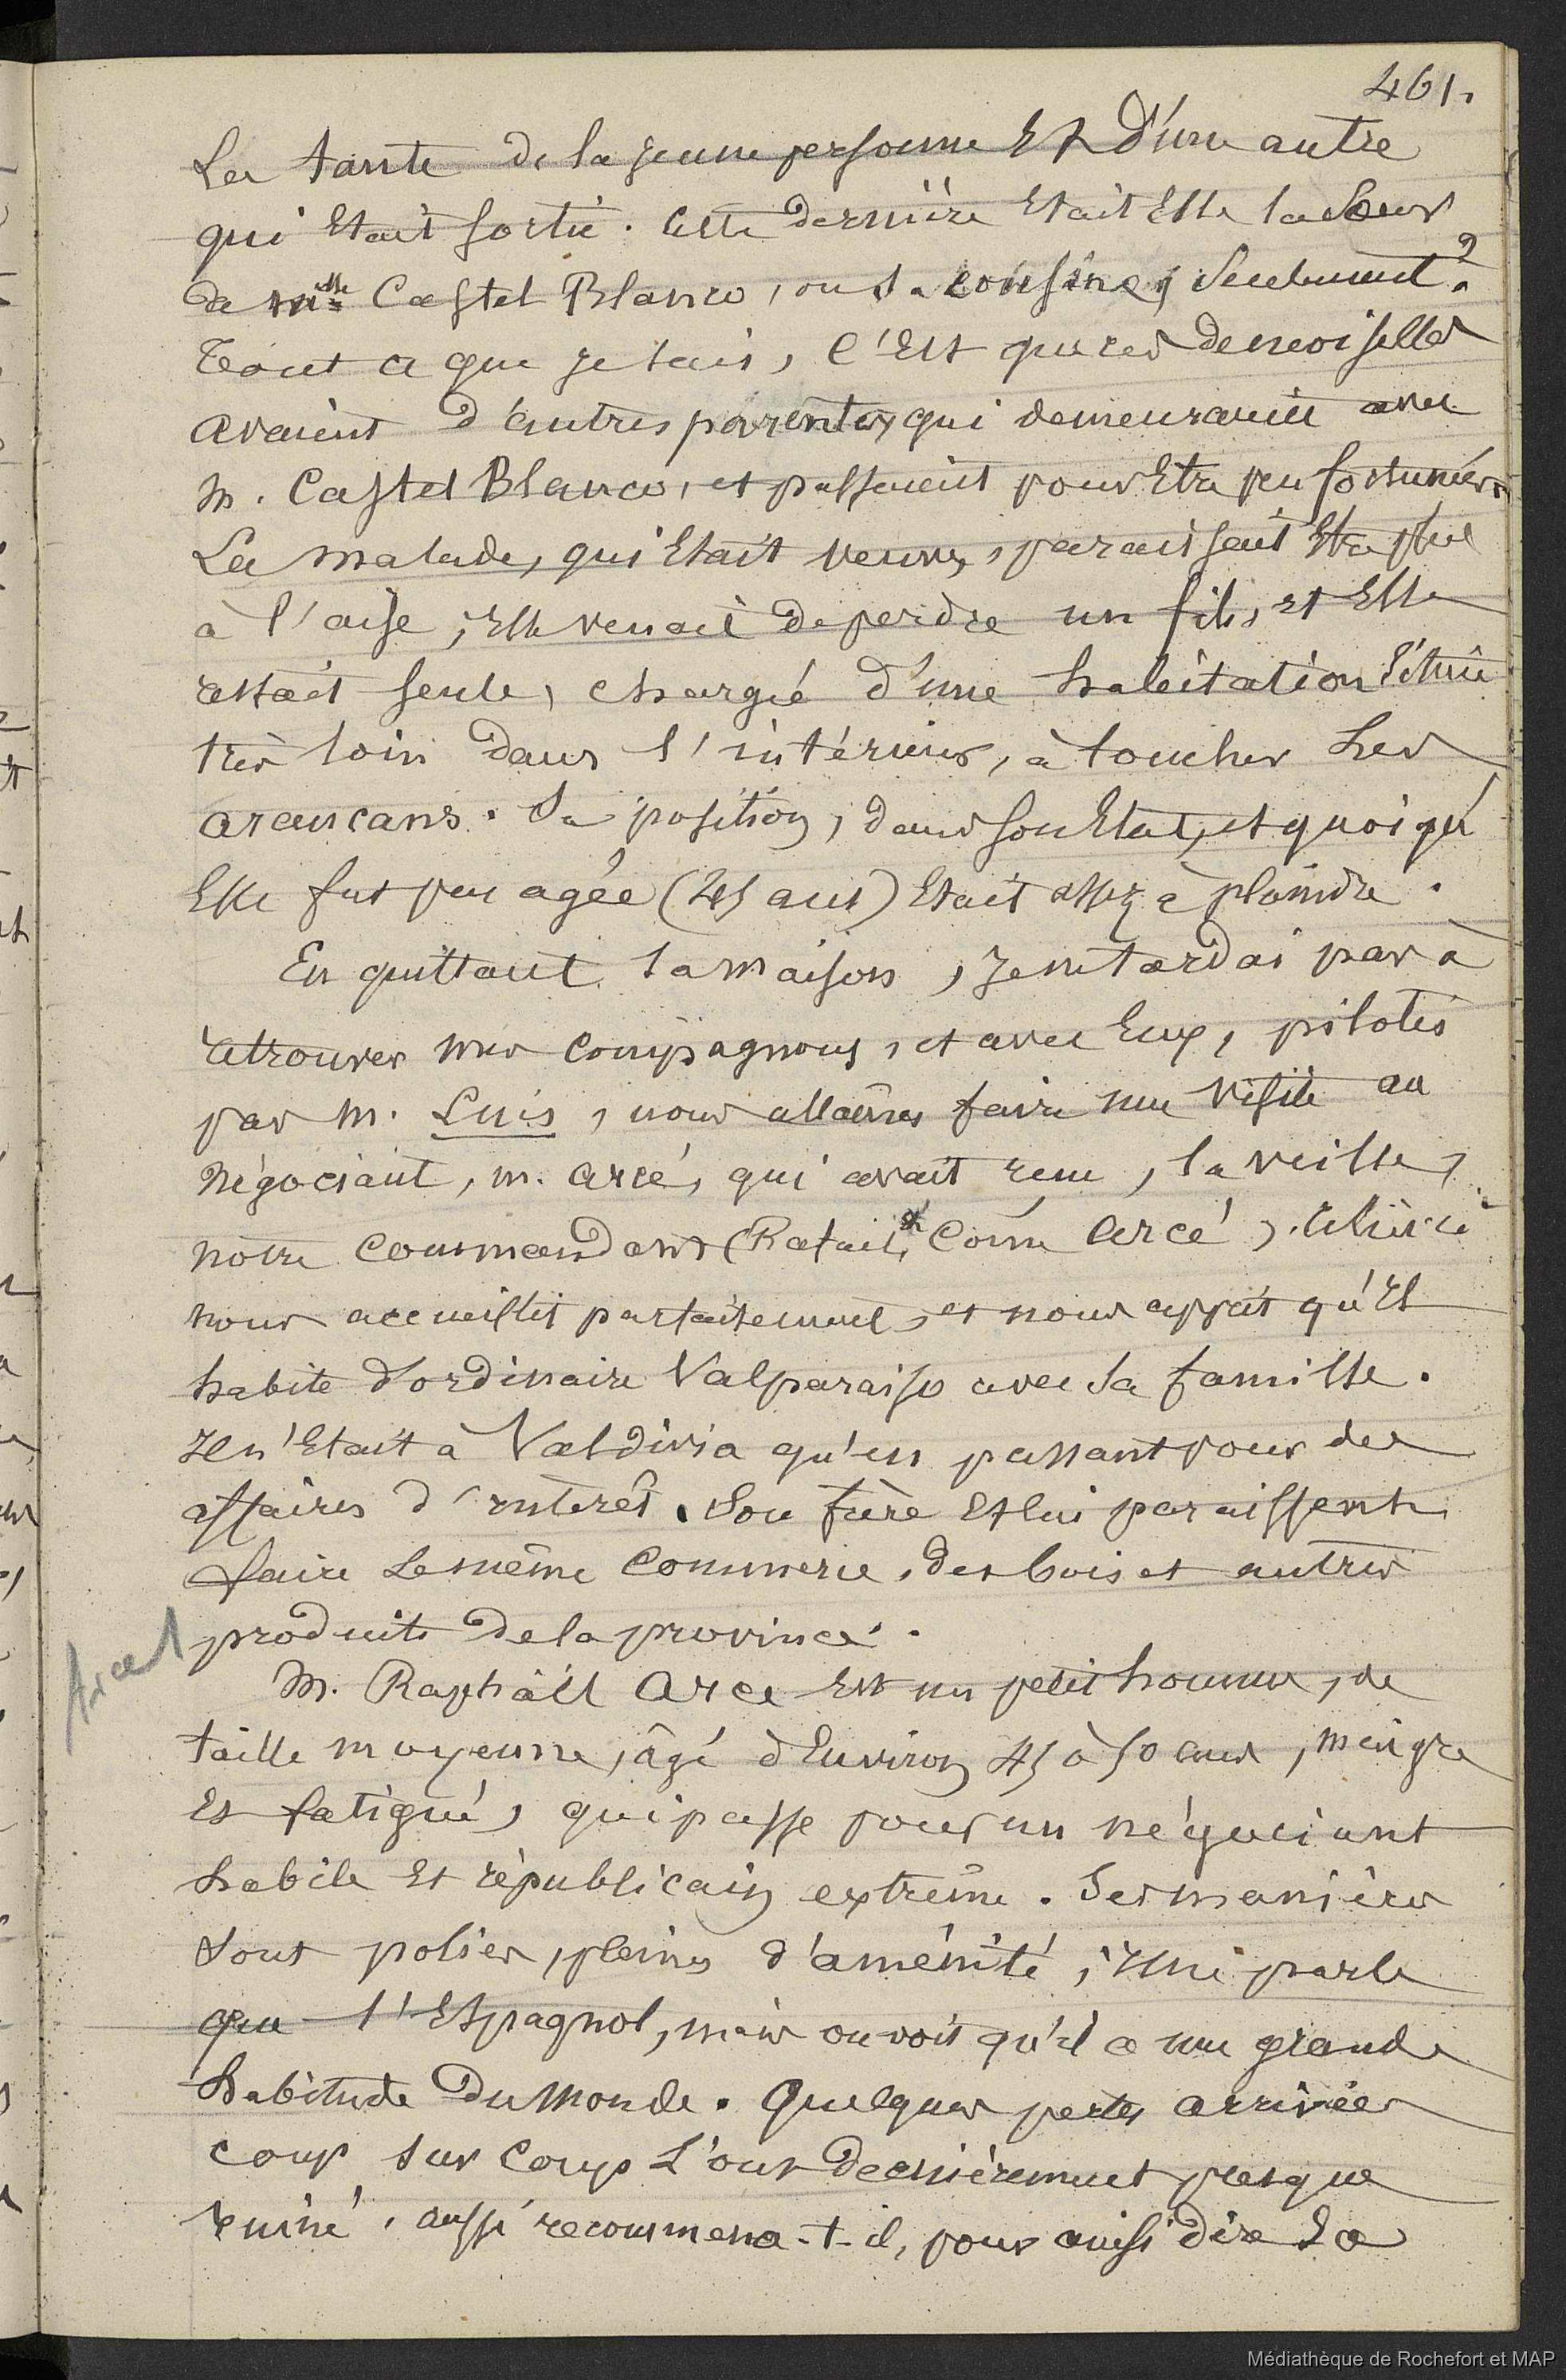 461.
La tante de la jeune personne Et d'une autre
qui Etait sortie. Cette dernière Etait Elle la Soeur
de Mlle Castel Blanco, ou sa cousine, seulement ?
Tout ce que je sais, C'Est que ces demoiselles
avaient d'autres parentes, qui demeuraient avec
M. Castel Blanco, et passaient pour Etre peu fortunées.
La malade, qui Etait veuve, paraissait Etre plus
à l'aise ; Elle venait de perdre un fils, et Elle
restait seule, chargée d'une habitation située
très loin dans l'intérieur, à toucher les
araucans. Sa position, dans son Etat, et quoiqu'
Elle fut peu agée (45 ans) Etait assez à plaindre.
En quittant la maison, je ne tardai pas à
retrouver mes compagnons, et avec Eux, pilotés
par M. Luis, nous allâmes faire une visite au
négociant, M. Arcé, qui avait reçu, la veille,
notre Commandant (Rafael, Arcé).
nous accueillit parfaitement, et nous apprit qu'Il
habite d'ordinaire Valparaiso avec sa famille.
Il n'Etait à Valdivia qu'en passant pour des
affaires d'intérêt. Son frère Et lui paraissent
faire le même Commerce, des bois et autres
produits de la province.
Arce
M. Raphaël Arce Est un petit homme, de
taille moyenne, âgé d'Environ 45 à 50 ans, maigre
Et fatigué, qui passe pour un négociant
habile Et républicain extrême. Ses manières
sont polies, pleines d'aménité ; Il ne parle
que l'Espagnol, mais on voit qu'il a une grande
habitude du Monde. Quelques pertes arrivées
coup sur Coup L'ont dernièrement presque
ruiné, aussi recommença-t-il, pour ainsi dire sa
Médiathèque de Rochefort et MAP